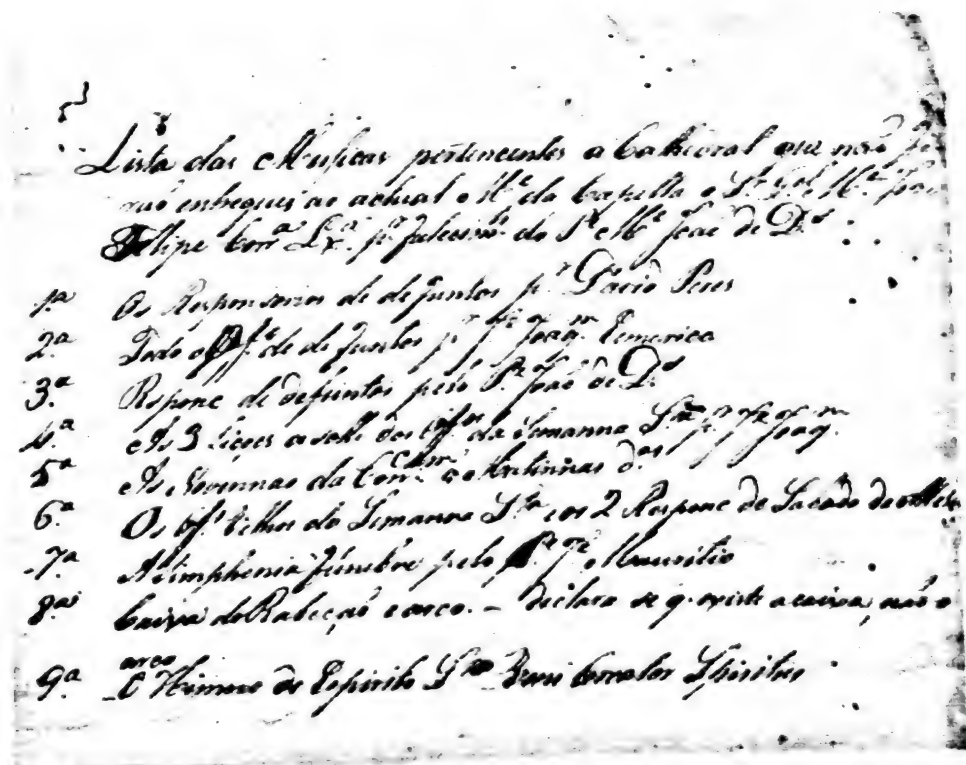 Lista das Musicas pertencentes a Cathedral que não fo
rão entregues ao actual M.e da Capella o Sr. M.e João
Felipe por falecim.to do P.e M.e João de D.s
1.a Os Responsorios de defuntos p.r David Peres
2.a Todo o Off.o de defuntos p.r Joaq.m Emerico
3.a Respons. de defuntos pelo P.e João de D.s
4.a As 3 Licões a solo dos Off.os da Semanna S.ta p.r Joaq.m
5.a As Novennas da Conc.am e Matinnas d.os
6.a Os Off.os velhos da Semanna S.ta e os 2 Respons. de Sabado de
7.a A Simphonia funebre pelo P.e J.e Mauricio
8.a Caixa do Rabecaõ e arco. – declara se q. existe a caixa, não o
arco
9.a O Himno do Espirito S.to Veni Creator Spiritus